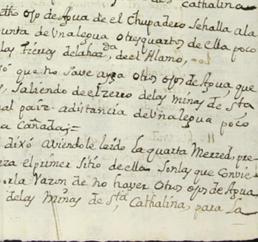 Cathalina
dtho ojo de Agua de el Chupadero se halla a la
junta de Una legua otros quartos de ella poco
las tierras de la haz.da de el Alamo,
ó que no save ayga Otros ojos de Agua que
s, Saliendo de el zerro de las minas de Sta
al pair a distancia de Una legua poco
a Cañada;
dixó aviendole leido la quarta Merced, pre
za el primer Sitio de ella Son las que Convie
rla Razon de No haver Otros ojos de Agua
de las minas de Sta Cathalina, para la